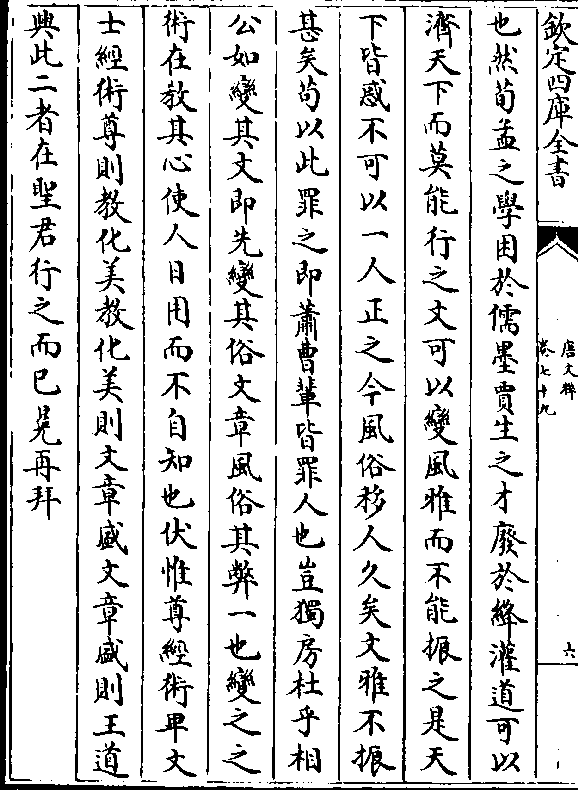 欽定四庫全書
唐文粹
卷七十九
六
也然荀孟之學困於儒墨賈生之才廢於絳灌道可以
濟天下而莫能行之文可以變風雅而不能振之是天
下皆惑不可以一人正之今風俗移人久矣文雅不振
甚矣茍以此罪之即蕭曹輩皆罪人也豈獨房杜乎相
公如變其文即先變其俗文章風俗其弊一也變之之
術在教其心使人日用而不自知也伏惟尊經術卑文
士經術尊則教化美教化美則文章盛文章盛則王道
興此二者在聖君行之而已冕再拜